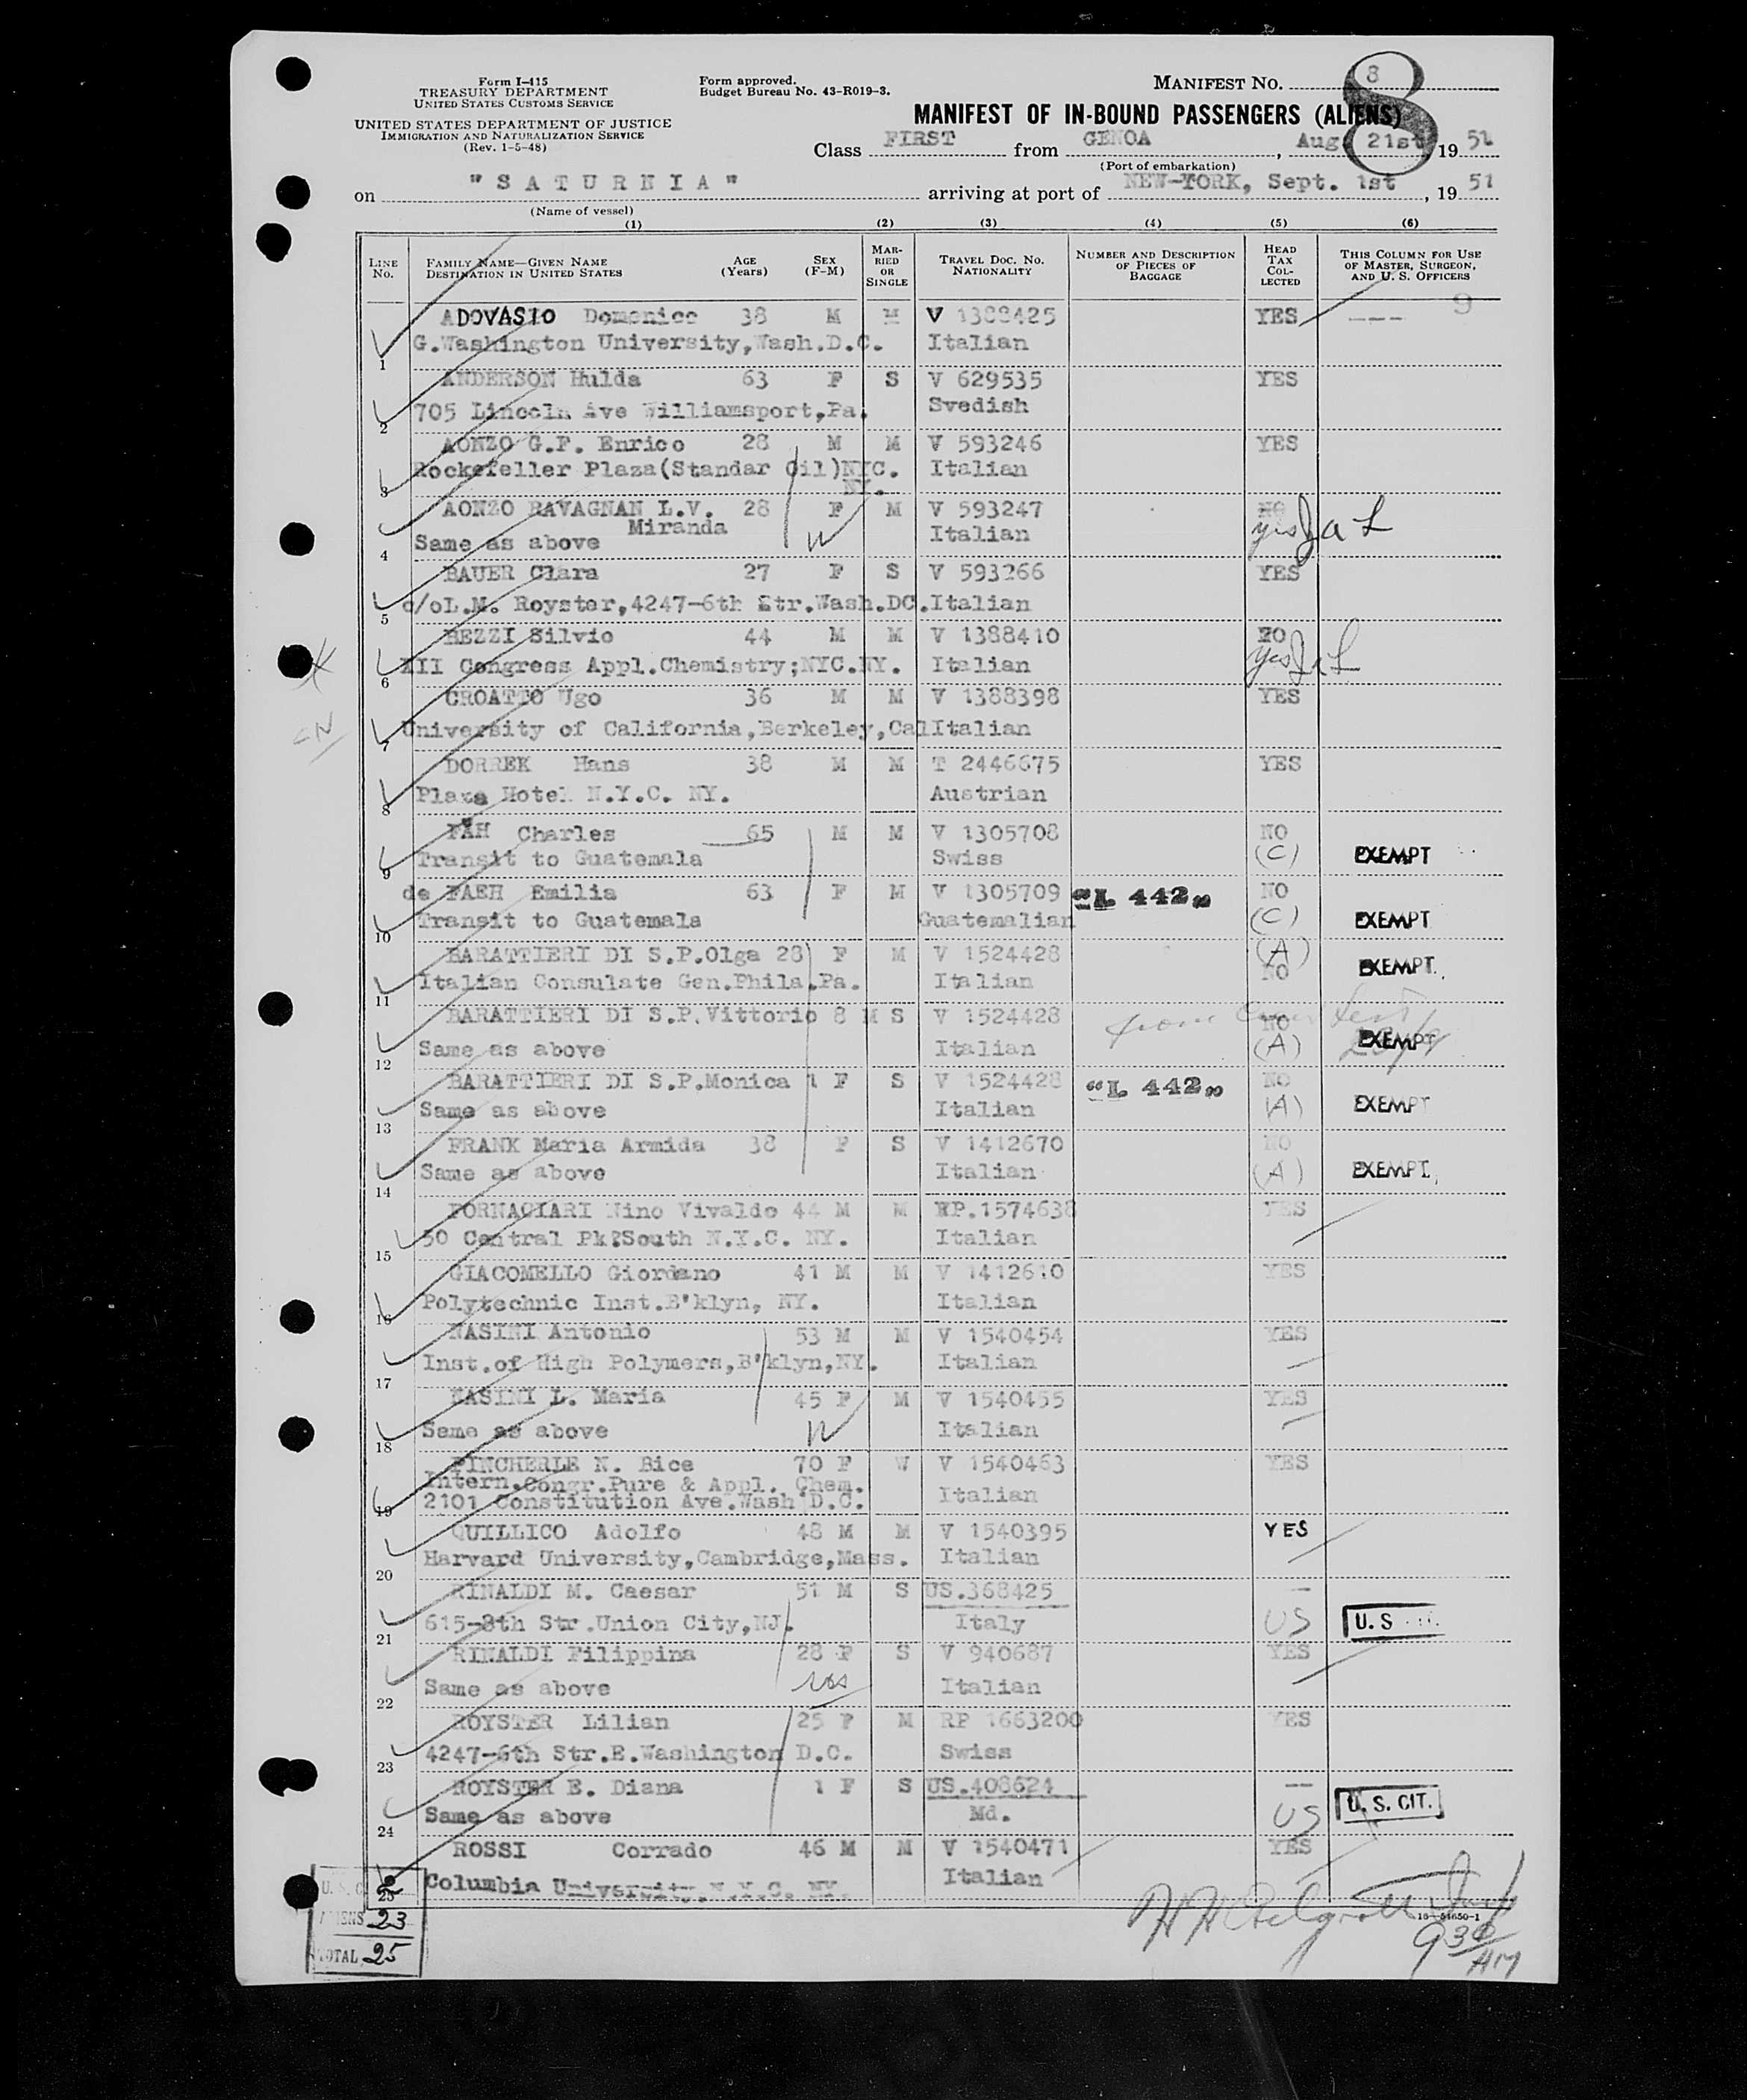 Form I-415
TREASURY DEPARTMENT
UNITED STATES CUSTOMS SERVICE
UNITED STATES DEPARTMENT OF JUSTICE
IMMIGRATION AND NATURALIZATION SERVICE
(Rev. 1-5-48)
Form approved.
Budget Bureau No. 43-R019-3.
MANIFEST NO. 8
8
MANIFEST OF IN-BOUND PASSENGERS (ALIENS)
Class FIRST from GENOA, Aug. 21st 19 51
(Port of embarkation)
on "SATURNIA" arriving at port of NEW-YORK, Sept. 1st, 19 51
(Name of vessel)
(1) (2) (3) (4) (5) (6)
LINE No. FAMILY NAME—GIVEN NAME DESTINATION IN UNITED STATES AGE (Years) SEX (F-M) MARRIED OR SINGLE TRAVEL DOC. No. NATIONALITY NUMBER AND DESCRIPTION OF PIECES OF BAGGAGE HEAD TAX COLLECTED THIS COLUMN FOR USE OF MASTER, SURGEON, AND U. S. OFFICERS
9
ADOVASIO Domenico 38 M M V 1388425 YES ---
1 G.Washington University,Wash.D.C. Italian
ANDERSON Hulda 63 F S V 629535 YES
2 705 Lincoln Ave Williamsport,Pa. Svedish
AONZO G.F. Enrico 28 M M V 593246 YES
3 Rockefeller Plaza(Standar Oil)NYC. Italian
NY.
AONZO RAVAGNAN L.V. 28 F M V 593247 NO
Miranda yes
4 Same as above Italian
BAUER Clara 27 F S V 593266 YES
5 c/oL.M. Royster,4247-6th Str.Wash.DC. Italian
BEZZI Silvio 44 M M V 1388410 NO
6 XII Congress Appl.Chemistry;NYC.NY. Italian yes
CROATTO Ugo 36 M M V 1388398 YES
7 University of California,Berkeley,Cal Italian
DORREK Hans 38 M M T 2446675 YES
8 Plaza Hotel N.Y.C. NY. Austrian
FÄH Charles 65 M M V 1305708 NO
9 Transit to Guatemala Swiss (C) EXEMPT
de FAEH Emilia 63 F M V 1305709 "L 442" NO
10 Transit to Guatemala Guatemalian (C) EXEMPT
BARATTIERI DI S.P.Olga 28 F M V 1524428 (A)
11 Italian Consulate Gen.Phila.Pa. Italian NO EXEMPT.
BARATTIERI DI S.P.Vittorio 8 M S V 1524428 from NO
12 Same as above Italian (A) EXEMPT
BARATTIERI DI S.P.Monica 1 F S V 1524428 "L 442" NO
13 Same as above Italian (A) EXEMPT
FRANK Maria Armida 38 F S V 1412670 NO
14 Same as above Italian (A) EXEMPT.
FORNACIARI Nino Vivaldo 44 M M RP.1574638 YES
15 50 Central Pk?South N.Y.C. NY. Italian
GIACOMELLO Giordano 41 M M V 1412610 YES
16 Polytechnic Inst.B'klyn, NY. Italian
NASINI Antonio 53 M M V 1540454 YES
17 Inst.of High Polymers,B'klyn,NY. Italian
NASINI L. Maria 45 F M V 1540455 YES
18 Same as above Italian
PINCHERLE N. Bice 70 F W V 1540463 YES
Intern.Congr.Pure & Appl. Chem.
19 2101 Constitution Ave.Wash D.C. Italian
QUILLICO Adolfo 48 M M V 1540395 YES
20 Harvard University,Cambridge,Mass. Italian
RINALDI M. Caesar 51 M S US.368425 —
21 615-8th Str.Union City,NJ. Italy US U.S
RINALDI Filippina 28 F S V 940687 YES
22 Same as above Italian
ROYSTER Lilian 25 F M RP 1663200 YES
23 4247-6th Str.E.Washington D.C. Swiss
ROYSTER E. Diana 1 F S US.408624 --
24 Same as above Md. US U. S. CIT.
ROSSI Corrado 46 M M V 1540471 YES
25 Columbia University, N.Y.C. NY. Italian
U.S.C. 2
ALIENS 23
TOTAL 25
16—54650-1
9 30 AM